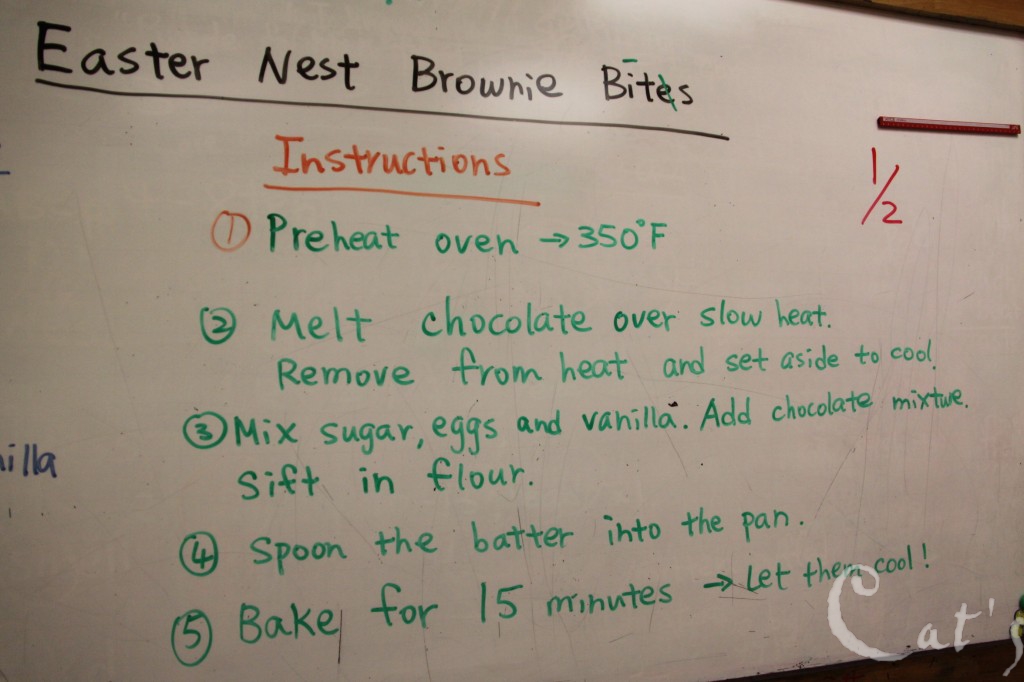 Easter Nest Brownie Bites
Instructions
① Preheat oven → 350°F
1/2
② Melt chocolate over slow heat.
Remove from heat and set aside to cool.
③ Mix sugar, eggs and vanilla. Add chocolate mixture.
Sift in flour.
④ Spoon the batter into the pan.
⑤ Bake for 15 minutes → Let them cool!
Cat's